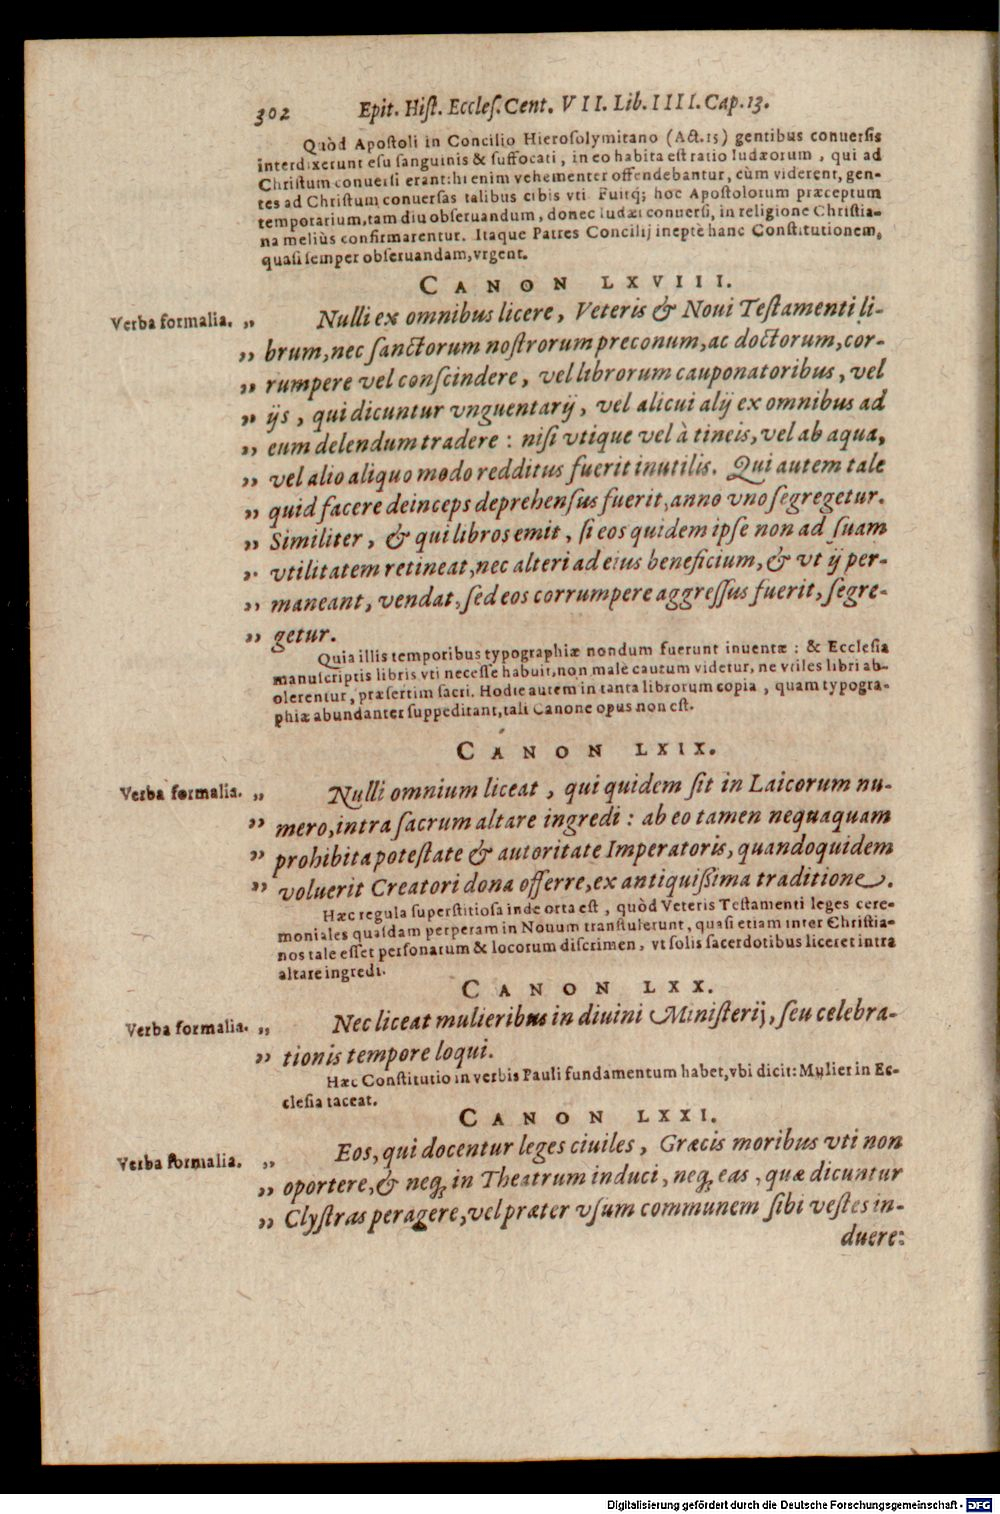 302 Epit. Hiſt. Eccleſ. Cent. VII. Lib. IIII. Cap. 13.
Quòd Apoſtoli in Concilio Hieroſolymitano (Act. 15) gentibus conuerſis
interdixerunt eſu ſanguinis & ſuffocati, in eo habita eſt ratio Iudæorum, qui ad
Chriſtum conuerſi erant: hi enim vehementer offendebantur, cùm viderent, gen-
tes ad Chriſtum conuerſas talibus cibis vti. Fuitq́; hoc Apoſtolorum præceptum
temporarium, tam diu obſeruandum, donec Iudæi conuerſi, in religione Chriſtia-
na meliùs confirmarentur. Itaque Patres Concilij ineptè hanc Conſtitutionem,
quaſi ſemper obſeruandam, vrgent.
CANON LXVIII.
Verba formalia. „ Nulli ex omnibus licere, Veteris & Noui Teſtamenti li-
„ brum, nec ſanctorum noſtrorum preconum, ac doctorum, cor-
„ rumpere vel conſcindere, vel librorum cauponatoribus, vel
„ ijs, qui dicuntur vnguentarij, vel alicui alij ex omnibus ad
„ eum delendum tradere: niſi vtique vel à tineis, vel ab aqua,
„ vel alio aliquo modo redditus fuerit inutilis. Qui autem tale
„ quid facere deinceps deprehenſus fuerit, anno vno ſegregetur.
„ Similiter, & qui libros emit, ſi eos quidem ipſe non ad ſuam
„ vtilitatem retineat, nec alteri ad eius beneficium, & vt ij per-
„ maneant, vendat, ſed eos corrumpere aggreſſus fuerit, ſegre-
„ getur.
Quia illis temporibus typographiæ nondum fuerunt inuentæ: & Eccleſia
manuſcriptis libris vti neceſſe habuit, non malè cautum videtur, ne vtiles libri ab-
olerentur, præſertim ſacri. Hodie autem in tanta librorum copia, quam typogra-
phiæ abundanter ſuppeditant, tali Canone opus non eſt.
CANON LXIX.
Verba formalia. „ Nulli omnium liceat, qui quidem ſit in Laicorum nu-
„ mero, intra ſacrum altare ingredi: ab eo tamen nequaquam
„ prohibita poteſtate & autoritate Imperatoris, quandoquidem
„ voluerit Creatori dona offerre, ex antiquißima traditione.
Hæc regula ſuperſtitioſa inde orta eſt, quòd Veteris Teſtamenti leges cere-
moniales quaſdam perperam in Nouum tranſtulerunt, quaſi etiam inter Chriſtia-
nos tale eſſet perſonarum & locorum diſcrimen, vt ſolis ſacerdotibus liceret intra
altare ingredi.
CANON LXX.
Verba formalia. „ Nec liceat mulieribus in diuini Miniſterij, ſeu celebra-
„ tionis tempore loqui.
Hæc Conſtitutio in verbis Pauli fundamentum habet, vbi dicit: Mulier in Ec-
cleſia taceat.
CANON LXXI.
Verba formalia. „ Eos, qui docentur leges ciuiles, Græcis moribus vti non
„ oportere, & neq; in Theatrum induci, neq; eas, quæ dicuntur
„ Clyſtras peragere, vel præter vſum communem ſibi veſtes in-
duere:
Digitalisierung gefördert durch die Deutsche Forschungsgemeinschaft - DFG